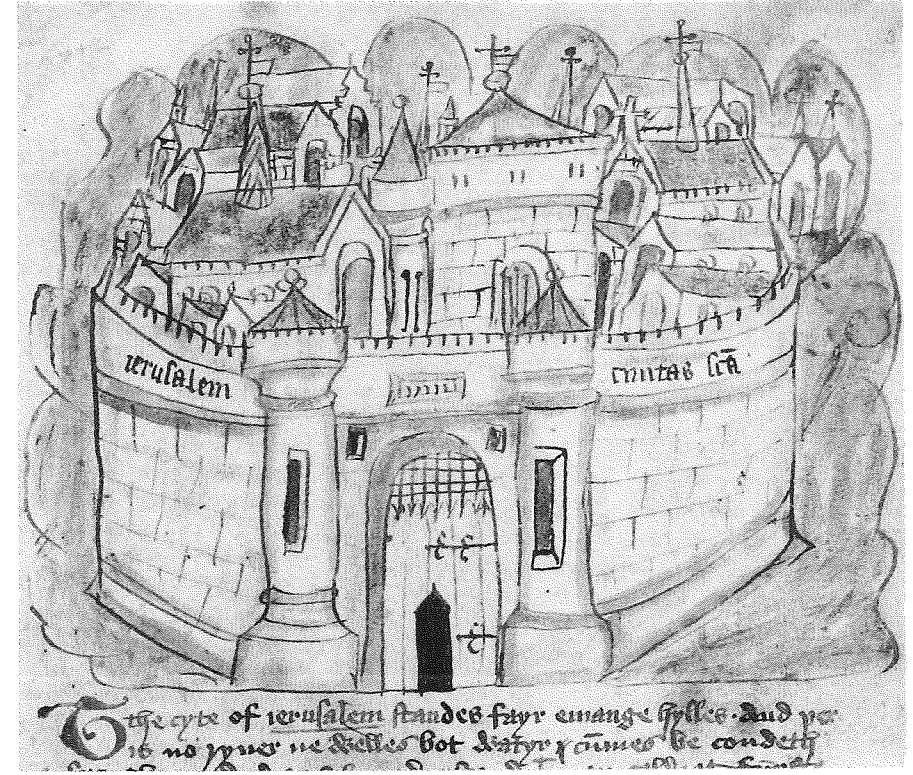 ierusalem
ciuitas scā
The cyte of ierusalem standes fayr emange hylles. And yer
is no ryuer ne welles bot watyr cūmes be condeth